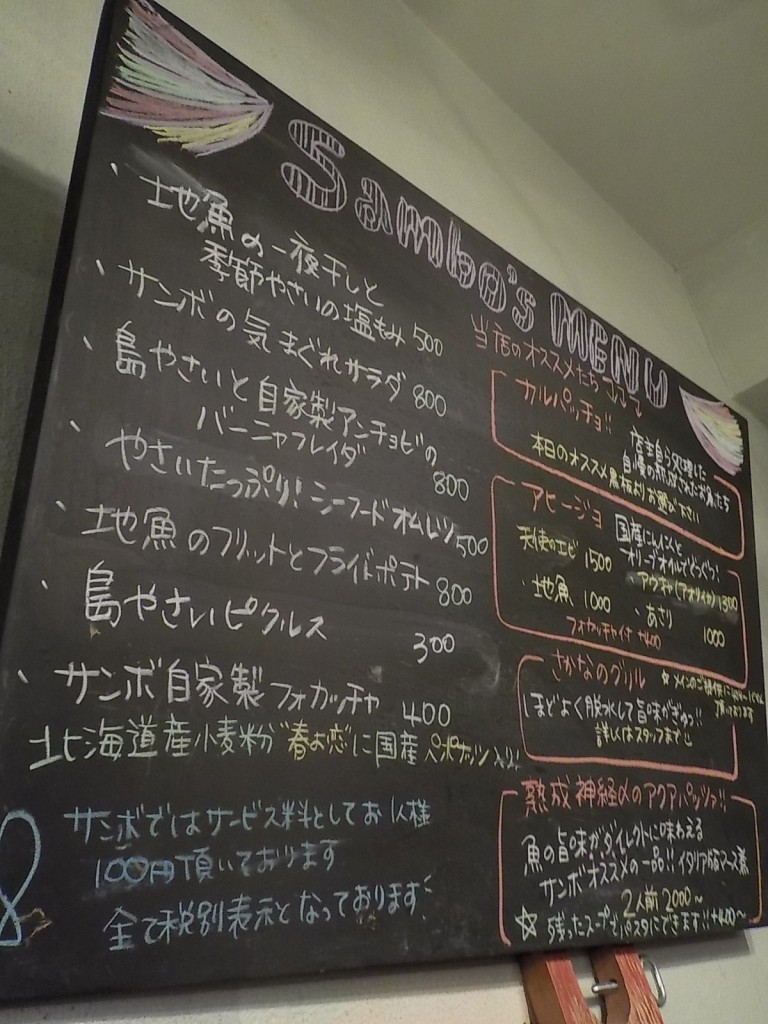 Sambo's MENU
・地魚の一夜干しと
季節やさいの塩もみ 500
・サンボの気まぐれサラダ 800
・島やさいと自家製アンチョビの
バーニャフレイダ 800
・やさいたっぷり!シーフードオムレツ 500
・地魚のフリットとフライドポテト 800
・島やさいピクルス 300
・サンボ自家製フォカッチャ 400
北海道産小麦粉"春よ恋"に国産
サンボではサービス料としてお1人様
100円頂いております
全て税別表示となっております
当店のオススメたち
カルパッチョ!!
店主自ら処理した
自慢の熟成されたお魚たち
本日のオススメ黒板よりお選び下さい
アヒージョ
国産にんにくと
オリーブオイルでどっぷつ!
天使のエビ 1500
・アウチャ(アオリイカ) 1300
・地魚 1000
・あさり 1000
フォカッチャ付 +400
さかなのグリル
ほどよく脱水して旨味がぎゅっ!!
詳しくはスタッフまで
☆メインのご提供に
頂いております
熟成神経〆のアクアパッツァ!!
魚の旨味がダイレクトに味わえる
サンボオススメの一品!!イタリア版
2人前 2000~
☆残ったスープでパスタにできます!!+400~